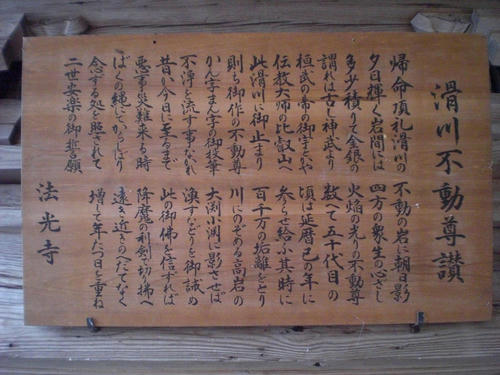 滑川不動尊讃
帰命頂礼滑川の 不動の岩に朝日影
夕日輝く岩間には 四方の衆生の心ざし
多少積りて金銀の 火焔の光りの不動尊
謂れは古し神武より 数て五十代目の
桓武の帝の御宇とかや 頃は延暦己の年に
伝教大師の比叡山へ 参らせ給ふ其時に
此滑川に御止まり 百千万の垢離をとり
則ち御作の不動尊 川にのぞめる高岩の
かん字まん字の御技筆 大渕小渕に影させば
不浄を流す事なかれ 漁すなどりを御誡め
昔が今に至るまで 此の御佛を信ずれば
悪事災難来る時 降魔の利剣で切拂へ
ばくの縄にてかつしばり 遠き近きのへだてなく
念ずる処を照されて 増て年たつ日を重ね
二世安楽の御誓願
法光寺